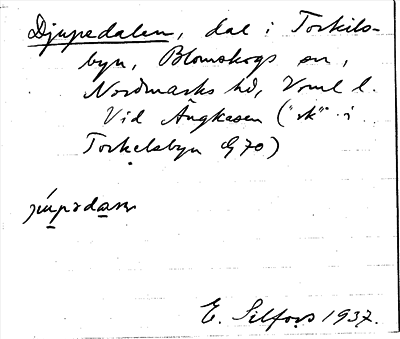 Djupedalen, dal i Torkils-
byn, Blomskogs sn,
Nordmarks hd, Vrml l.
Vid Ängkasen ("sk" i
Torkelsbyn G70)
E. Selfors 1937.